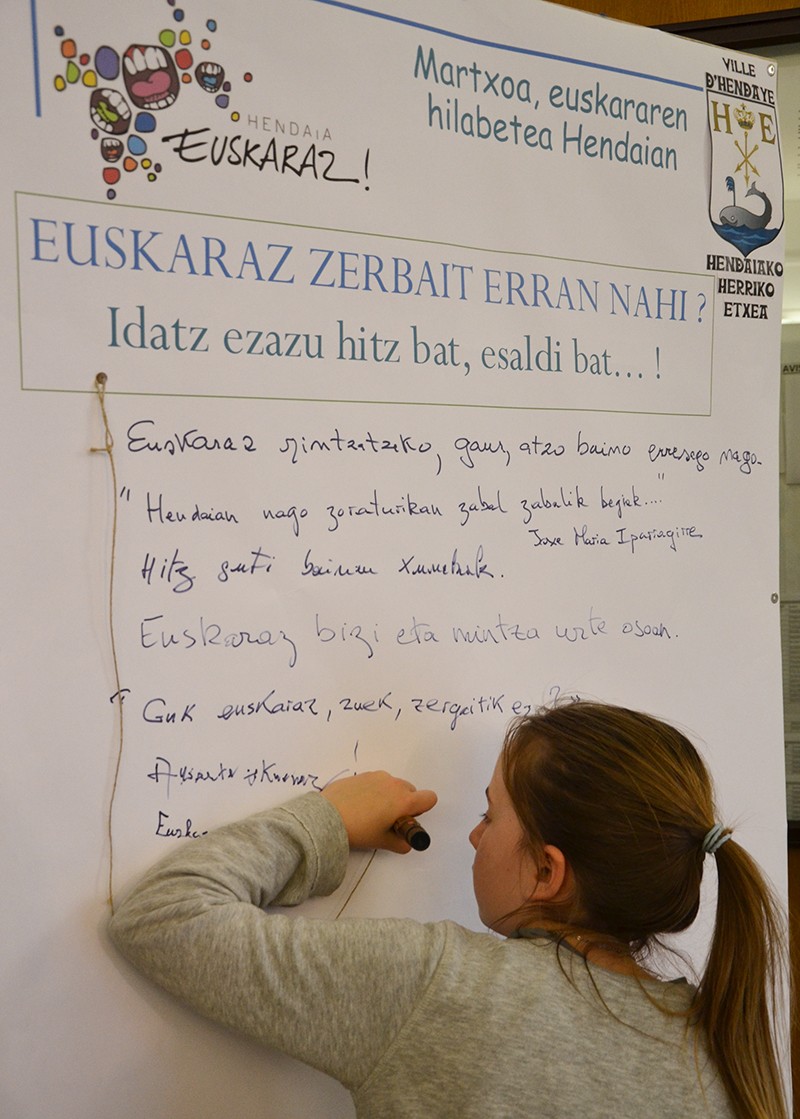 HENDAIA
EUSKARAZ!
Martxoa, euskararen
hilabetea Hendaian
VILLE
D'HENDAYE
H E
HENDAIAKO
HERRIKO
ETXEA
EUSKARAZ ZERBAIT ERRAN NAHI ?
Idatz ezazu hitz bat, esaldi bat... !
Euskaraz mintzatzeko, gaur, atzo baino errexego nago.
"Hendaian nago zoraturikan zabal zabalik begiak...."
Jose Maria Iparragirre
Hitz guti bainan xumetasunak.
Euskaraz bizi eta mintza urte osoan.
"Guk euskaraz, zuek, zergaitik ez ?"
Euska
AVIS